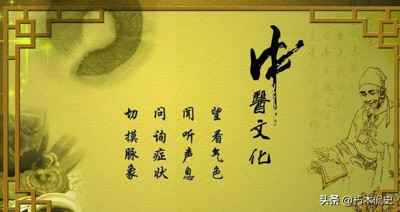 中醫文化
望看气色
闻听声息
问询症状
切摸脉象
头条 @朽木侃史